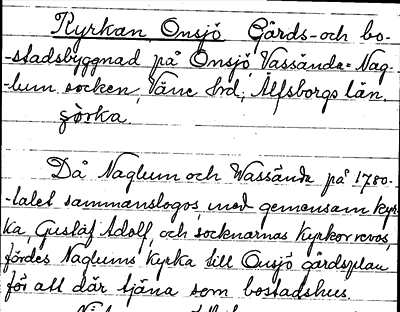 Kyrkan, Onsjö Gårds- och bo-
-stadsbyggnad på Onsjö, Vassända-Nag-
-lum socken, Väne hrd, Älfsborgs län.
Då Naglum och Wassända på 1780-
-talet sammanslogos, med gemensam kyr-
ka, Gustaf Adolf, och socknarnas kyrkor revos,
fördes Naglums kyrka till Onsjö gårdsplan
för att där tjäna som bostadshus.